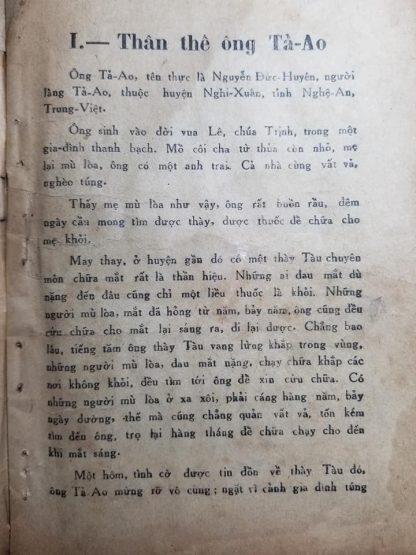 I.— Thân thế ông Tả-Ao
Ông Tả-Ao, tên thực là Nguyễn Đức-Huyên, người
làng Tả-Ao, thuộc huyện Nghi-Xuân, tỉnh Nghệ-An,
Trung-Việt.
Ông sinh vào đời vua Lê, chúa Trịnh, trong một
gia-đình thanh bạch. Mồ côi cha từ thủa còn nhỏ, mẹ
lại mù lòa, ông có một anh trai. Cả nhà cùng vất vả,
nghèo túng.
Thấy mẹ mù lòa như vậy, ông rất buồn rầu, đêm
ngày cầu mong tìm được thầy, được thuốc để chữa cho
mẹ khỏi.
May thay, ở huyện gần đó có một thầy Tàu chuyên
môn chữa mắt rất là thần hiệu. Những ai đau mắt dù
nặng đến đâu cũng chỉ một liều thuốc là khỏi. Những
người mù lòa, mắt đã hỏng từ năm, bảy năm, ông cũng đều
cứu chữa cho mắt lại sáng ra, đi lại được. Chẳng bao
lâu, tiếng tăm ông thầy Tàu vang lừng khắp trong vùng,
những người mù lòa, đau mắt nặng, chạy chữa khắp các
nơi không khỏi, đều tìm tới ông để xin cứu chữa. Có
những người mù lòa ở xa xôi, phải cáng hàng năm, bảy
ngày đường, thế mà cũng chẳng quản vất vả, tốn kém
tìm đến ông, trọ lại hàng tháng để chữa chạy cho đến
khi mắt sáng.
Một hôm, tình cờ được tin đồn về thầy Tàu đó,
ông Tả-Ao mừng rỡ vô cùng; ngặt vì cảnh gia đình túng